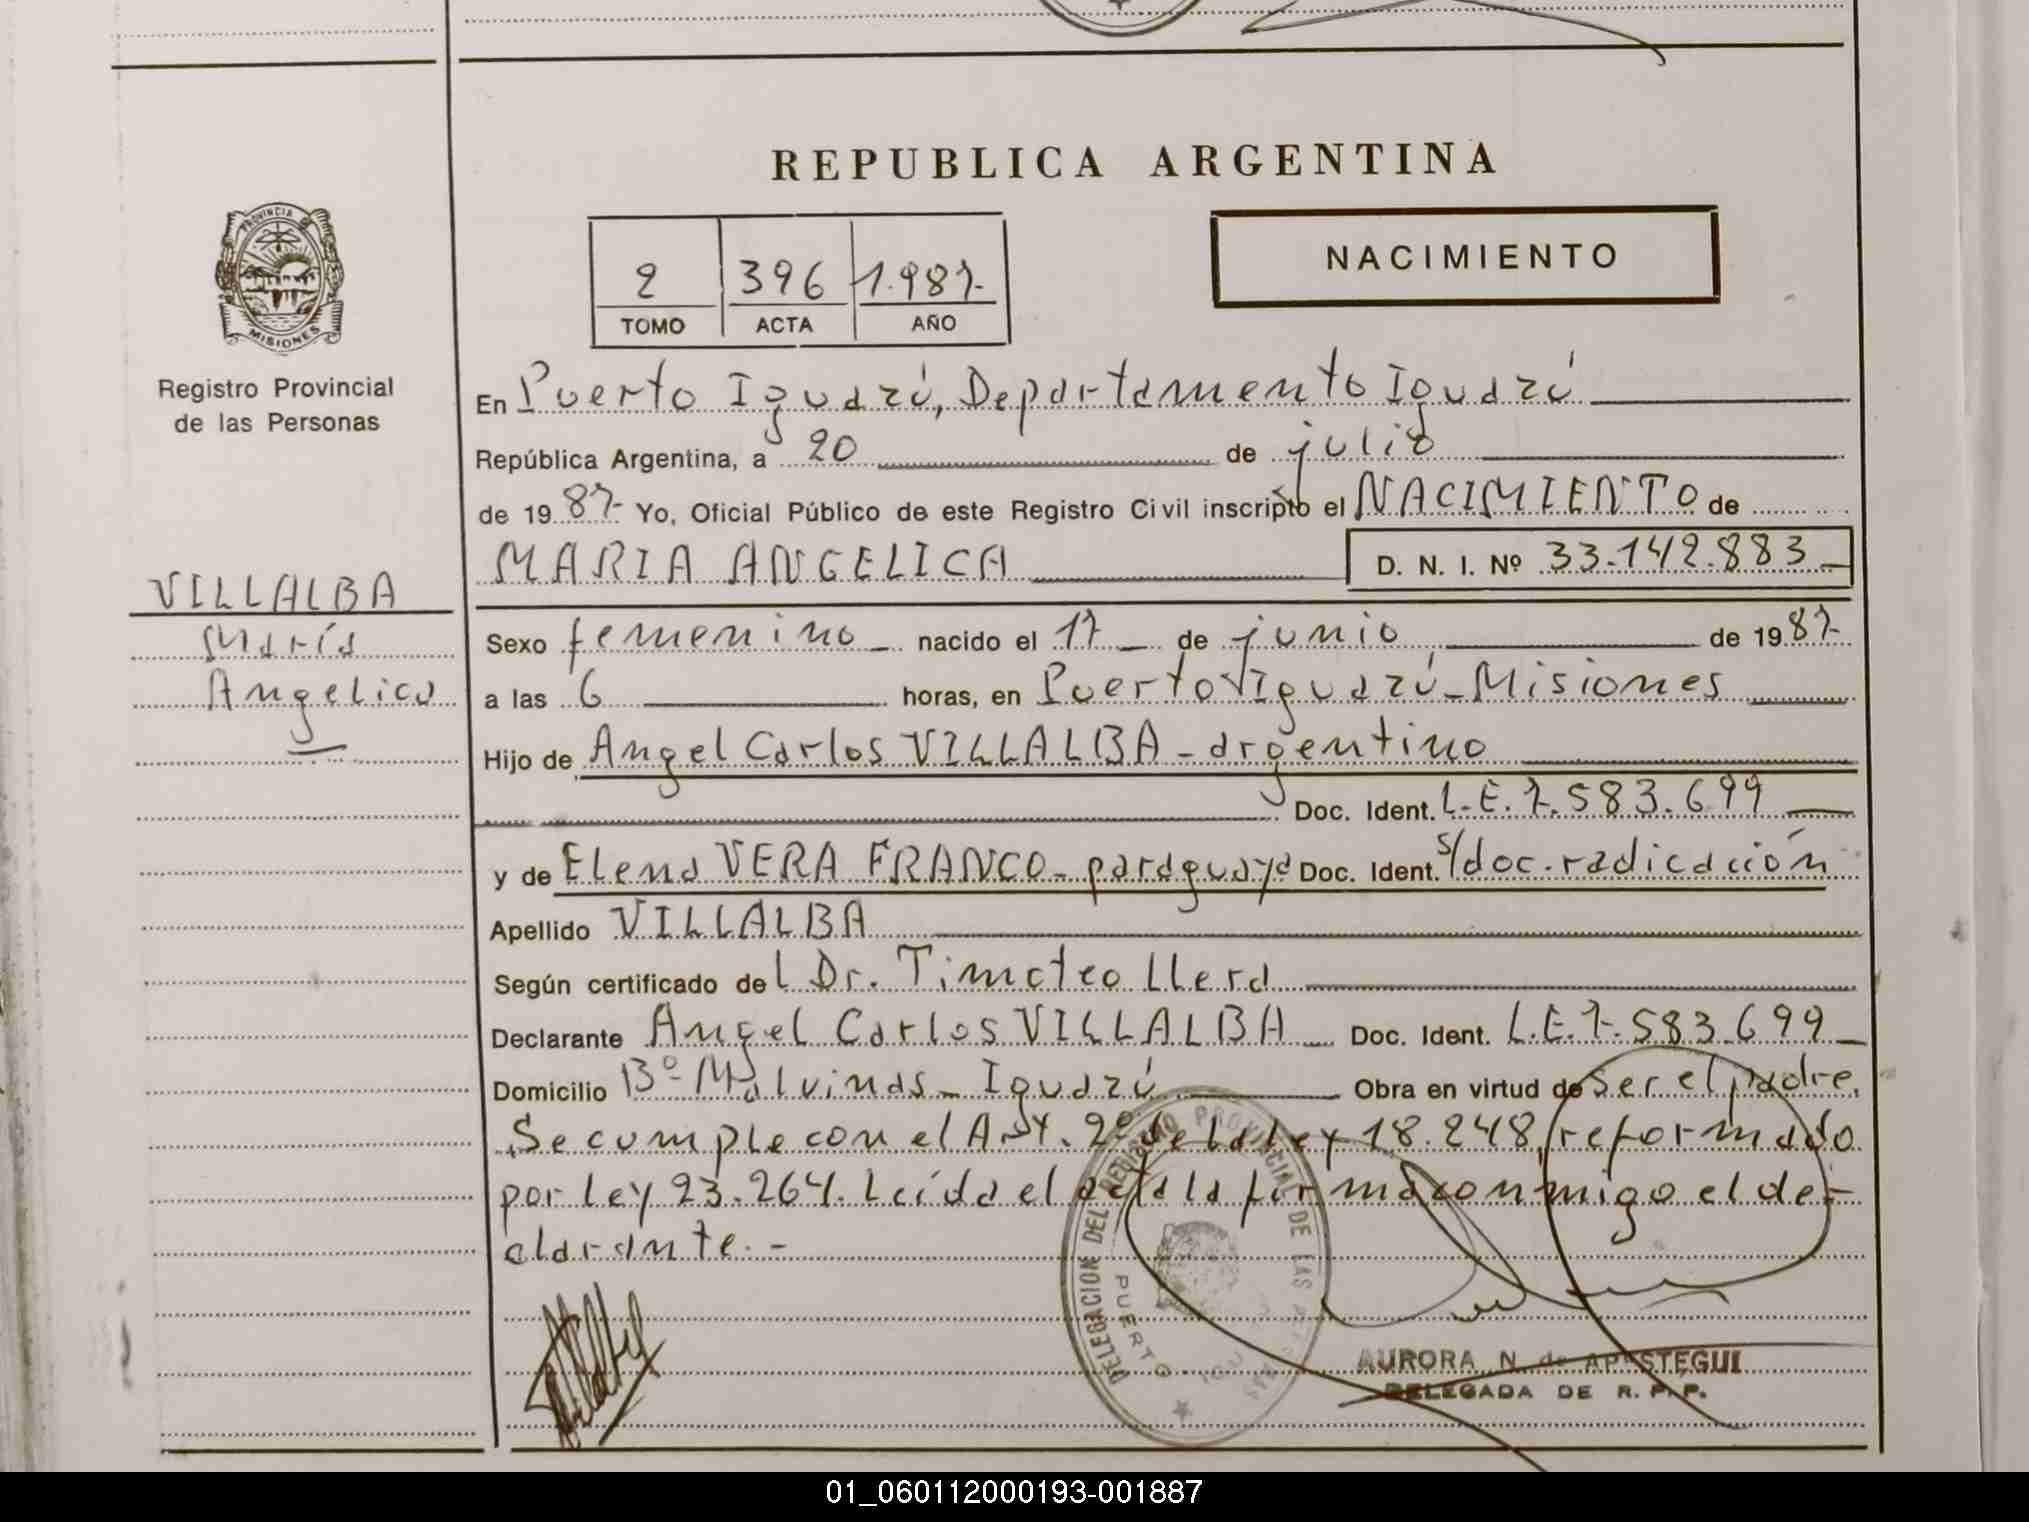 REPUBLICA ARGENTINA
PROVINCIA DE
MISIONES
Registro Provincial
de las Personas
NACIMIENTO
2 396 1.987-
TOMO ACTA AÑO
En Puerto Iguazú, Departamento Iguazú
República Argentina, a 20 de julio
de 1987- Yo, Oficial Público de este Registro Civil inscripto el NACIMIENTO de
MARIA ANGELICA D. N. I. Nº 33.142.883
VILLALBA
María
Angelica
Sexo femenino nacido el 17 de junio de 1987-
a las 6 horas, en Puerto Iguazú - Misiones
Hijo de Angel Carlos VILLALBA - argentino
Doc. Ident. L.E. 7.583.699
y de Elena VERA FRANCO - paraguaya Doc. Ident. s/doc. radicación
Apellido VILLALBA
Según certificado del Dr. Timoteo Llera
Declarante Angel Carlos VILLALBA Doc. Ident. L.E. 7.583.699
Domicilio Bº Malvinas - Iguazú Obra en virtud de ser el padre.
Se cumple con el Art. 2º de la Ley 18.248, reformado
por Ley 23.264. Leída el acta la firma conmigo el de-
clarante. -
DELEGACION DEL REGISTRO PROVINCIAL DE LAS PERSONAS
PUERTO IGUAZU
AURORA N. de APESTEGUI
DELEGADA DE R. P. P.
01_060112000193-001887